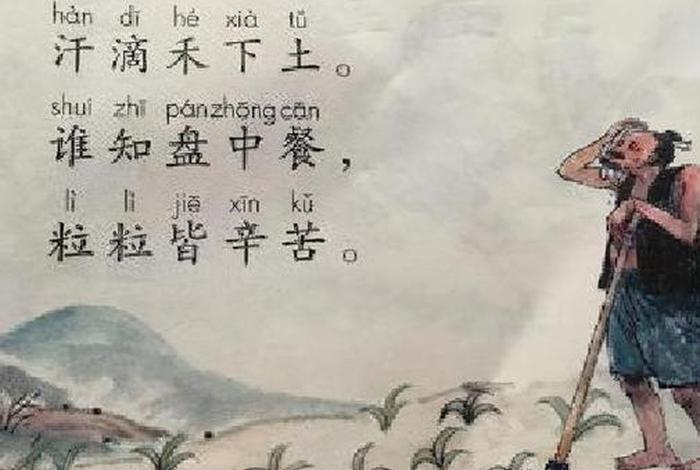 hàn dī hé xià tǔ
汗滴禾下土。
shuí zhī pán zhōng cān
谁知盘中餐，
lì lì jiē xīn kǔ
粒粒皆辛苦。